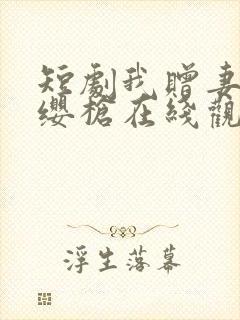 短劇我贈妻
纓槍在綫觀
浮生落幕